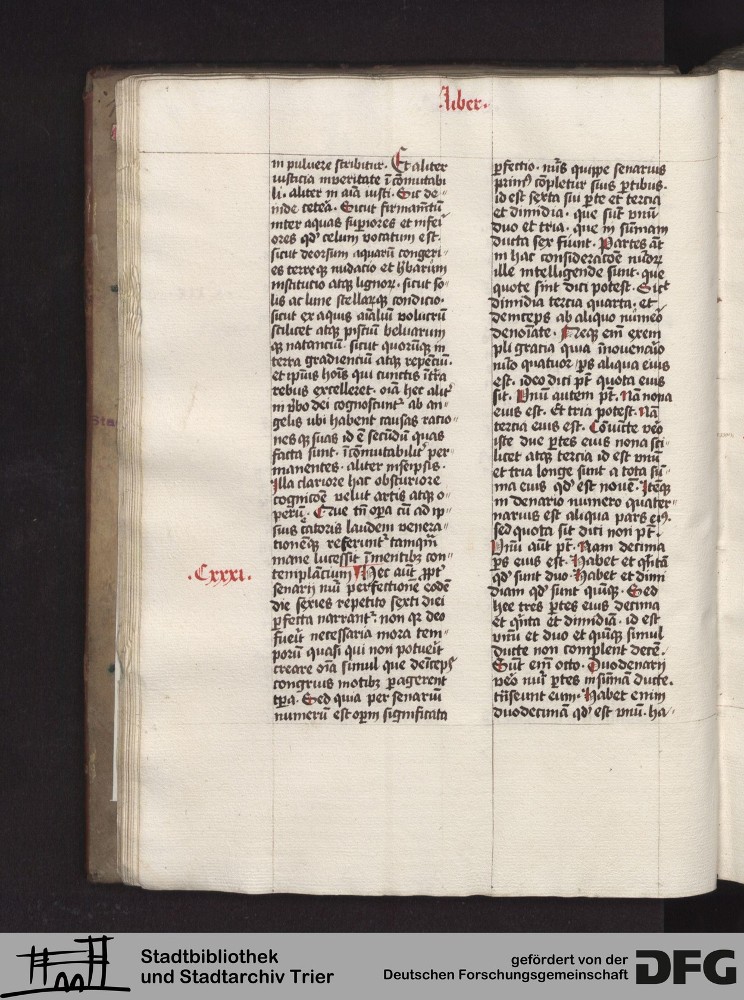 Liber.
in puluere scribitur. Et aliter
iusticia in veritate īcōmutabi
li. aliter in aīa iusti. Sic de⸗
inde cetera. Sicut firmamētū
inter aquas superiores et inferi⸗
ores qd' celum vocatum est.
sicut deorsum aquarū congeri⸗
es terreqꝫ nudatio et herbarum
institutio atqꝫ lignorꝝ. sicut so⸗
lis ac lune stellarūqꝫ conditio.
sicut ex aquis aīaliū volucrū
scilicet atqꝫ pisciū beluarum
qꝫ natanciū. sicut quorūqꝫ in
terra gradienciū atqꝫ repenciū.
et ipsius hoīs qui cunctis ī terra
rebus excelleret. oīa hec alit'
in v'bo dei cognoscunt' ab an⸗
gelis vbi habent causas ratio⸗
nesqꝫ suas id ē secūdū quas
facta sunt. īcōmutabilit' per⸗
manentes. aliter in seipsis.
Illa clariore hac obscuriore
cognicōe velut artis atqꝫ o⸗
perū. Que tn̄ opera cū ad ip⸗
sius creatoris laudem venera⸗
tionēqꝫ referunt' tamqm̄
mane lucessit ī mentibꝫ con⸗
templancium
.Cxxxi.
Hec aūt ꝓpt'
senarij nūi perfectione eodē
die sexies repetito sexti diei
ꝑfecta narrant'. non qꝛ deo
fuerit necessaria mora tem⸗
porū quasi qui non potuerit
creare oīa simul que deīceps
congruis motibꝫ ꝑagerent
tꝑa. Sed quia per senariū
numerū est opm̄ significata
ꝑfectio. nūs quippe senarius
primꝰ cōpletur suis ꝑtibus.
id est sexta sui ꝑte et tercia
et dimidia. que sūt vnū
duo et tria. que in summam
ducta sex fiunt. Partes āt
in hac consideracōe nūorꝝ
ille intelligende sunt. que
quote sint dici potest. Sic
dimidia tercia quarta. et
deinceps ab aliquo numero
denoīate. Neqꝫ em̄ exem
pli gracia quia ī nouenario
nūo quatuor ꝑs aliqua eius
est. ideo dici pt̄ quota eius
sit. Vnū autem pt̄. Nā nona
eius est. Et tria potest. Nā
tercia eius est. Cōiūcte vero
iste due ꝑtes eius nona sci⸗
licet atqꝫ tercia id est vnū
et tria longe sunt a tota sū⸗
ma eius qd' est noue. Itēqꝫ
in denario numero quater⸗
narius est aliqua pars eiꝰ.
sed quota sit dici non pt̄.
Vnū aūt pt̄. Nam decima
ꝑs eius est. Habet et quītā
qd' sunt duo. Habet et dimi
diam qd' sunt quīqꝫ. Sed
hee tres ꝑtes eius decima
et quīta et dimidia. id est
vnū et duo et quīqꝫ simul
ducte non complent decē.
Sūt em̄ octo. Duodenarij
vero nūi ꝑtes in sūmā ducte.
trāseunt eum. Habet enim
duodecimā qd' est vnū. ha⸗
Stadtbibliothek
und Stadtarchiv Trier
gefördert von der
Deutschen Forschungsgemeinschaft
DFG